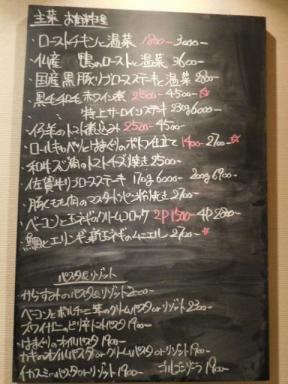 主菜 お肉料理
・ローストチキンと温菜 1800〜3000-
・仏産 鴨のローストと温菜 3600-
・国産黒豚リブロースステーキと温菜 2800-
・黒毛和牛 赤ワイン煮 2500-4500-☆
〃 特上サーロインステーキ 230g 6000-
・仔羊のトマト煮込み 2500-4500-
・ロールキャベツとはまぐりのポトフ仕立て 1400-2700-☆
・和牛スジ肉のトマトチーズ焼き 2500-
・佐賀牛リブロースステーキ 170g 6000- 200g 6900-
・豚モモ肉のマスタードパン粉焼き 2700-
・ベーコンと玉ネギのクリームコロッケ 2P 1500- 4P 2800-
・鯛とエリンギ、のムニエル 2700-☆
パスタ&リゾット
からすみのパスタ&リゾット 2000-
ベーコンとポルチーニ茸のクリームパスタorリゾット 2300-
ズワイガニのピリ辛トマトパスタ 1900-
はまぐりのオイルパスタ 1900-
カキのオイルパスタorクリームパスタorリゾット 1900-
イカスミのパスタorリゾット 1900- 1900-